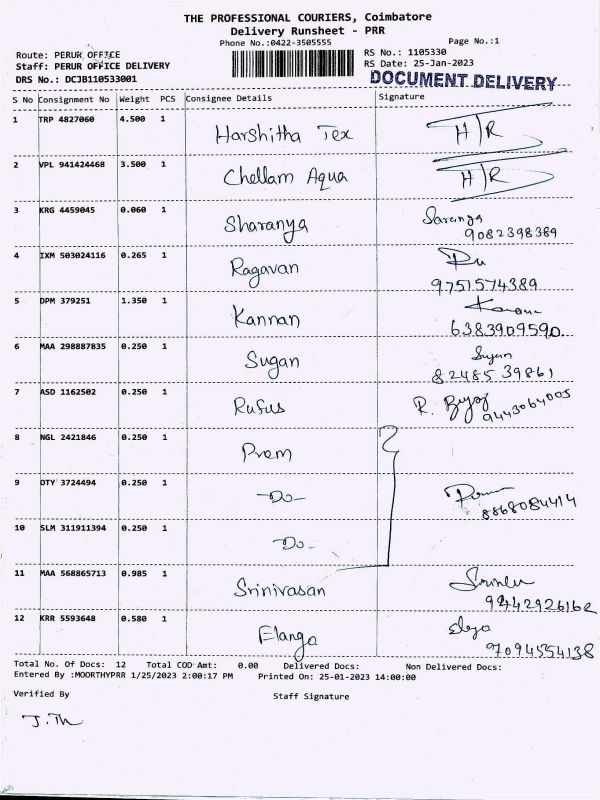 THE PROFESSIONAL COURIERS, Coimbatore
Delivery Runsheet - PRR
Phone No.:0422-3505555
Page No.:1
Route: PERUR OFFICE
RS No.: 1105330
Staff: PERUR OFFICE DELIVERY
RS Date: 25-Jan-2023
DRS No.: DCJB110533001
DOCUMENT DELIVERY
S No Consignment No Weight PCS Consignee Details Signature
1 TRP 4827060 4.500 1 Harshitha Tex H/R
2 VPL 941424468 3.500 1 Chellam Aqua H/R
3 KRG 4459045 0.060 1 Sharanya Saranya
9082398389
4 IXM 503024116 0.265 1 Ragavan
9751574389
5 DPM 379251 1.350 1 Kannan
6383909590
6 MAA 298887835 0.250 1 Sugan
82485 39861
7 ASD 1162502 0.250 1 Rufus R.
9443064005
8 NGL 2421846 0.250 1 Prem
9 OTY 3724494 0.250 1 -Do-
8868084414
10 SLM 311911394 0.250 1 -Do-
11 MAA 568865713 0.985 1 Srinivasan
9442926162
12 KRR 5593648 0.580 1 Elango
9094554138
Total No. Of Docs: 12 Total COD Amt: 0.00 Delivered Docs: Non Delivered Docs:
Entered By :MOORTHYPRR 1/25/2023 2:00:17 PM Printed On: 25-01-2023 14:00:00
Verified By Staff Signature